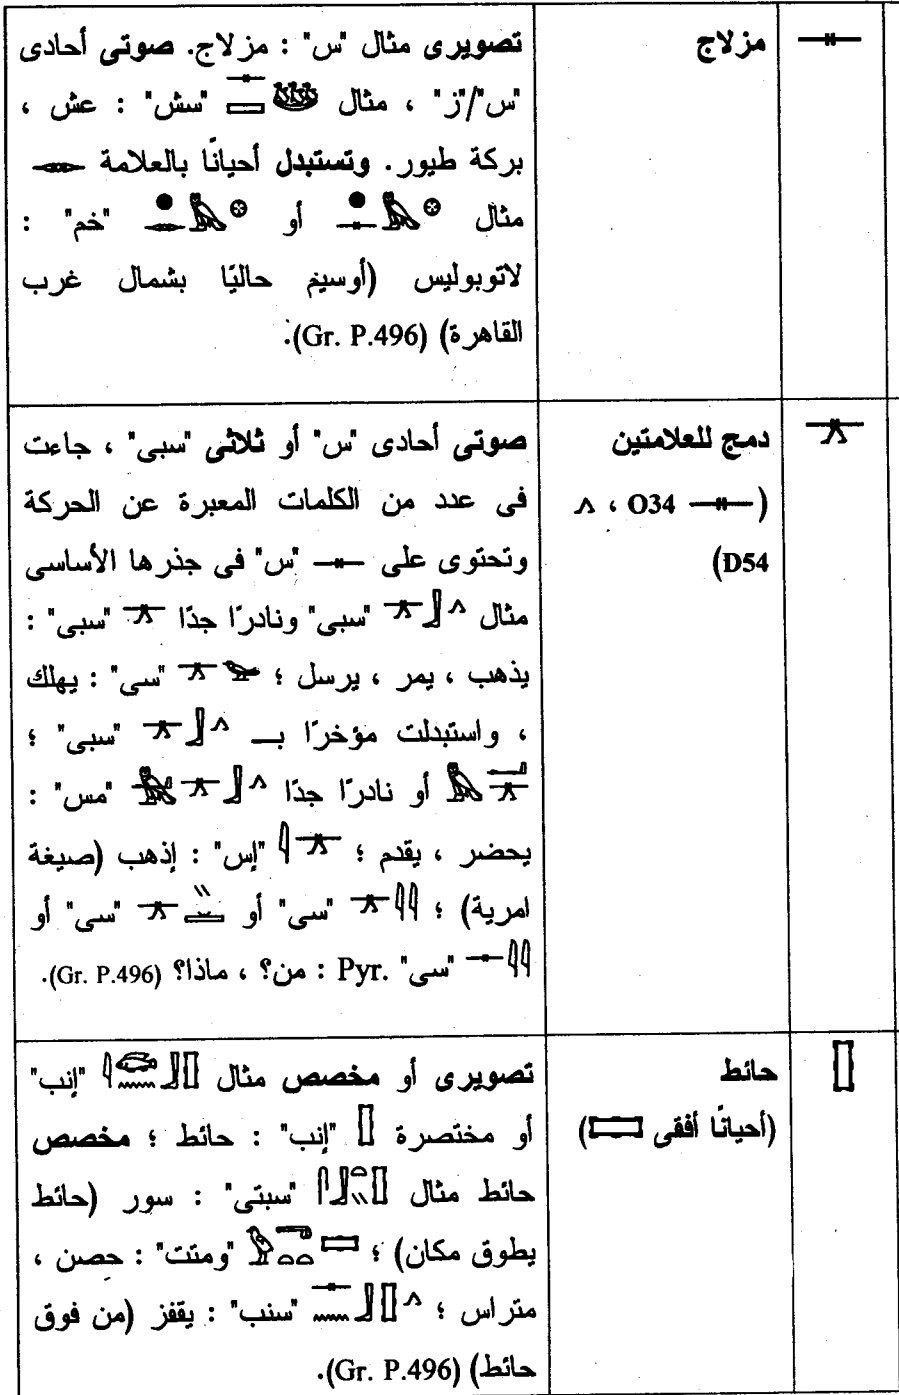 مزلاج
تصويرى مثال "س" : مزلاج. صوتى أحادى
"س"/"ز" ، مثال 𓊃𓈙𓌸 "سش" : عش ،
بركة طيور. وتستبدل أحيانًا بالعلامة
مثال أو "خم" :
لاتوبوليس (أوسيم حاليًا بشمال غرب
القاهرة) (Gr. P.496).
دمج للعلامتين
(𓊃 O34 ، 𓂻
D54)
صوتى أحادى "س" أو ثلاثى "سبى" ، جاءت
فى عدد من الكلمات المعبرة عن الحركة
وتحتوى على 𓊃 "س" فى جذرها الأساسى
مثال "سبى" ونادرًا جدًا "سبى" :
يذهب ، يمر ، يرسل ؛ "سى" : يهلك
، واستبدلت مؤخرًا بـ "سبى" ؛
أو نادرًا جدًا "مس" :
يحضر ، يقدم ؛ "إس" : إذهب (صيغة
امرية) ؛ "سى" أو "سى" أو
"سى" Pyr. : من؟ ، ماذا؟ (Gr. P.496).
حائط
(أحيانًا أفقى)
تصويرى أو مخصص مثال "إنب"
أو مختصرة "إنب" : حائط ؛ مخصص
حائط مثال "سبتى" : سور (حائط
يطوق مكان) ؛ "ومتت" : حصن ،
متراس ؛ "سنب" : يقفز (من فوق
حائط) (Gr. P.496).